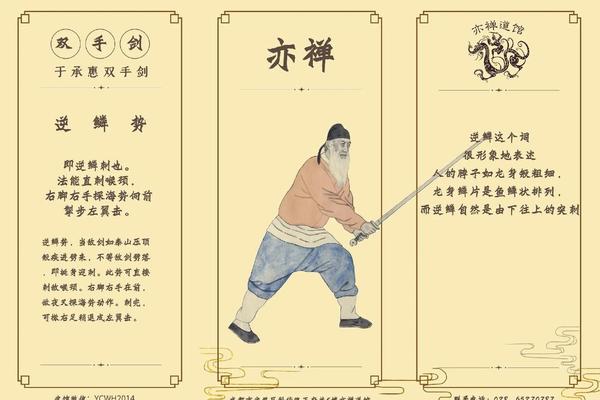 双手剑
于承惠双手剑
逆鳞势
即逆鳞刺也。
法能直刺喉颈,
右脚右手探海势向前
掣步左翼击。
逆鳞势,当敌剑如泰山压顶
般疾进劈来,不等敌剑劈落
,即挺身迎刺。此势可直接
刺敌喉颈。右脚右手在前,
做夜叉探海势动作。刺完,
可撤右足稍退成左翼击。
YCWH2014
亦禅
亦禅道馆
逆鳞这个词
很形象地表述
人的脖子如龙身般粗细,
龙身鳞片是鱼鳞状排列,
而逆鳞自然是由下往上的突刺